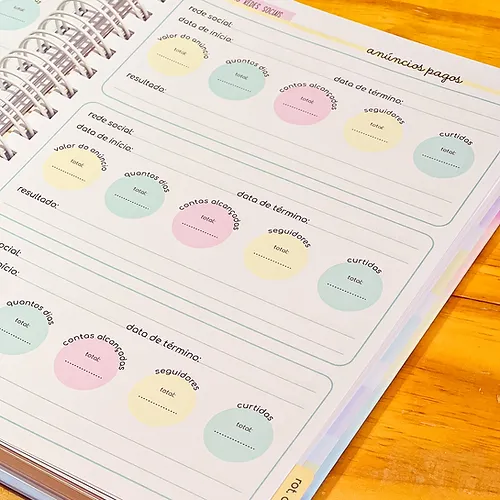 REDES SOCIAIS
anúncios pagos
rede social:
data de início:
data de término:
valor do anúncio
total:
quantos dias
total:
contas alcançadas
total:
seguidores
total:
curtidas
total:
resultado:
rede social:
data de início:
data de término:
valor do anúncio
total:
quantos dias
total:
contas alcançadas
total:
seguidores
total:
curtidas
total:
resultado:
social:
início:
data de término:
quantos dias
total:
contas alcançadas
total:
seguidores
total:
curtidas
total: